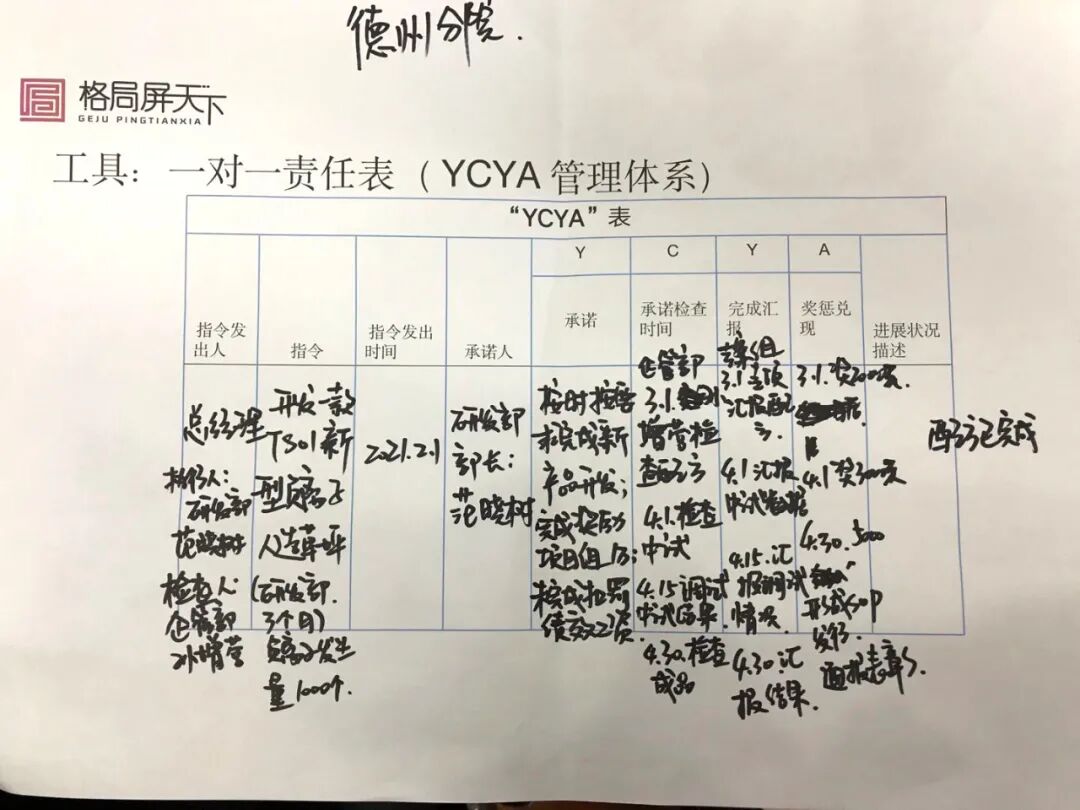 德州分院.
格局屏天下
GEJU PINGTIANXIA
工具：一对一责任表（YCYA 管理体系）
“YCYA”表
Y
C
Y
A
指令发
出人
指令
指令发出
时间
承诺人
承诺
承诺检查
时间
完成汇
报
奖惩兑
现
进展状况
描述
总经理
执行人：
研发部
范晓树
检查人：
企管部
孙增营
开发一款
TS01新
型负离子
人造草坪
(研发部.
3个月)
负离子发生
量1000个.
2021.2.1
研发部
部长：
范晓树
按时按要
求完成新
产品开发；
完成奖励
项目组1万；
按成扣罚
绩效2次
企管部
3.1.
增营检
查配方
4.1.检查
中试
4.15调试
中试结果
4.30.检查
成品
3.1专项
汇报配
方.
4.1汇报
中试数据
4.15.汇
报调试
情况.
4.30.汇
报结果.
3.1.奖200
4.1奖300元
4.30.5000
形成SOP
发行
通报表彰.
配方已完成